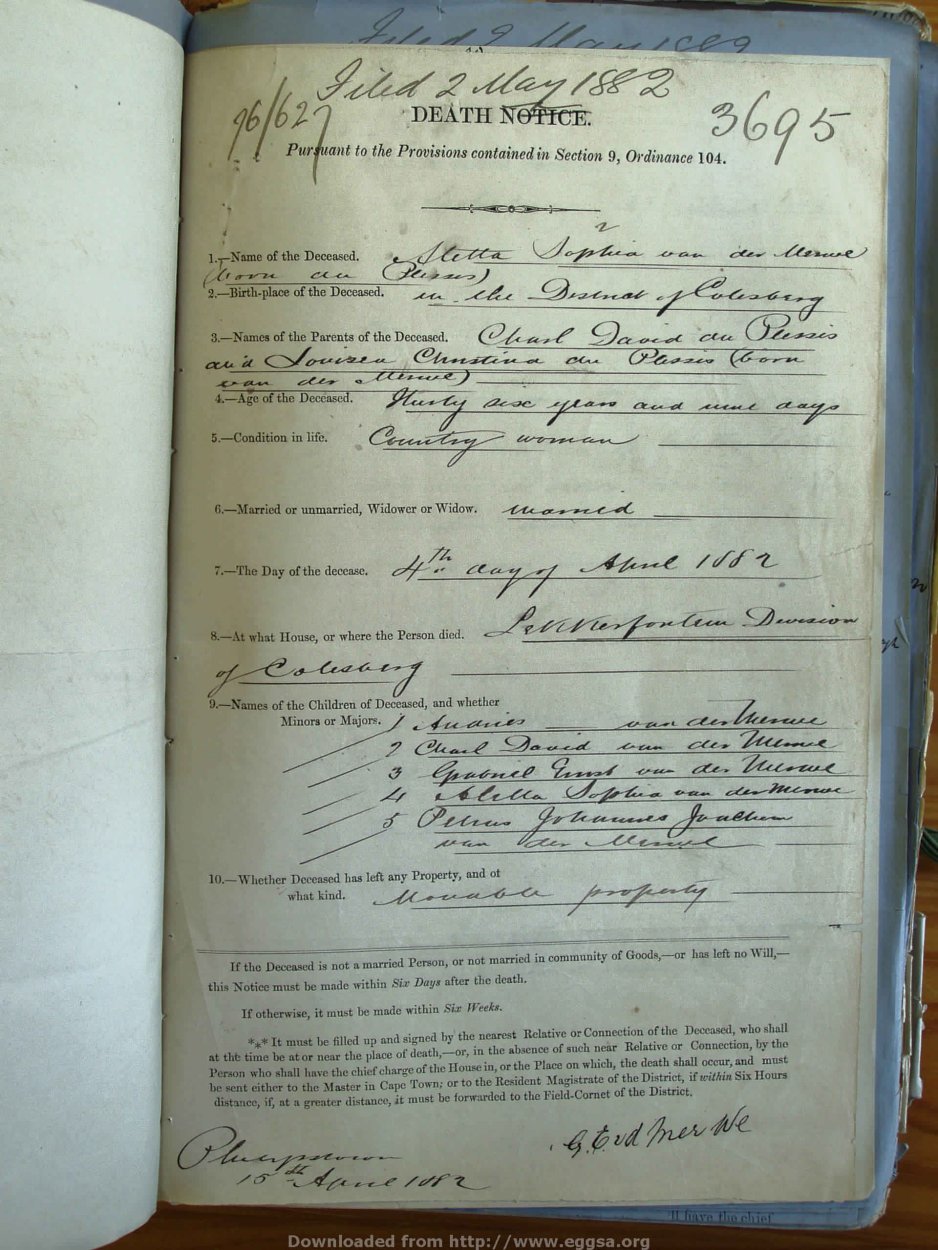 Filed 2 May 1882
Filed 2 May 1882
76/627
3695
DEATH NOTICE.
Pursuant to the Provisions contained in Section 9, Ordinance 104.
1.—Name of the Deceased. Aletta Sophia van der Merwe
(born du Plessis)
2.—Birth-place of the Deceased. in the District of Colesberg
3.—Names of the Parents of the Deceased. Charl David du Plessis
and Louisa Christina du Plessis (born
van der Merwe)
4.—Age of the Deceased. Thirty six years and nine days
5.—Condition in life. Country woman
6.—Married or unmarried, Widower or Widow. married
7.—The Day of the decease. 4th day of April 1882
8.—At what House, or where the Person died. Lekkerfontein Division
of Colesberg
9.—Names of the Children of Deceased, and whether
Minors or Majors. 1 Andries van der Merwe
2 Charl David van der Merwe
3 Gabriel Ernst van der Merwe
4 Aletta Sophia van der Merwe
5 Petrus Johannes Joachem
van der Merwe
10.—Whether Deceased has left any Property, and of
what kind. Movable property
If the Deceased is not a married Person, or not married in community of Goods,—or has left no Will,—
this Notice must be made within Six Days after the death.
If otherwise, it must be made within Six Weeks.
*** It must be filled up and signed by the nearest Relative or Connection of the Deceased, who shall
at the time be at or near the place of death,—or, in the absence of such near Relative or Connection, by the
Person who shall have the chief charge of the House in, or the Place on which, the death shall occur, and must
be sent either to the Master in Cape Town; or to the Resident Magistrate of the District, if within Six Hours
distance, if, at a greater distance, it must be forwarded to the Field-Cornet of the District.
G. E. v d Mer We
Philipstown
15th April 1882
ll have the chief
Downloaded from http://www.eggsa.org